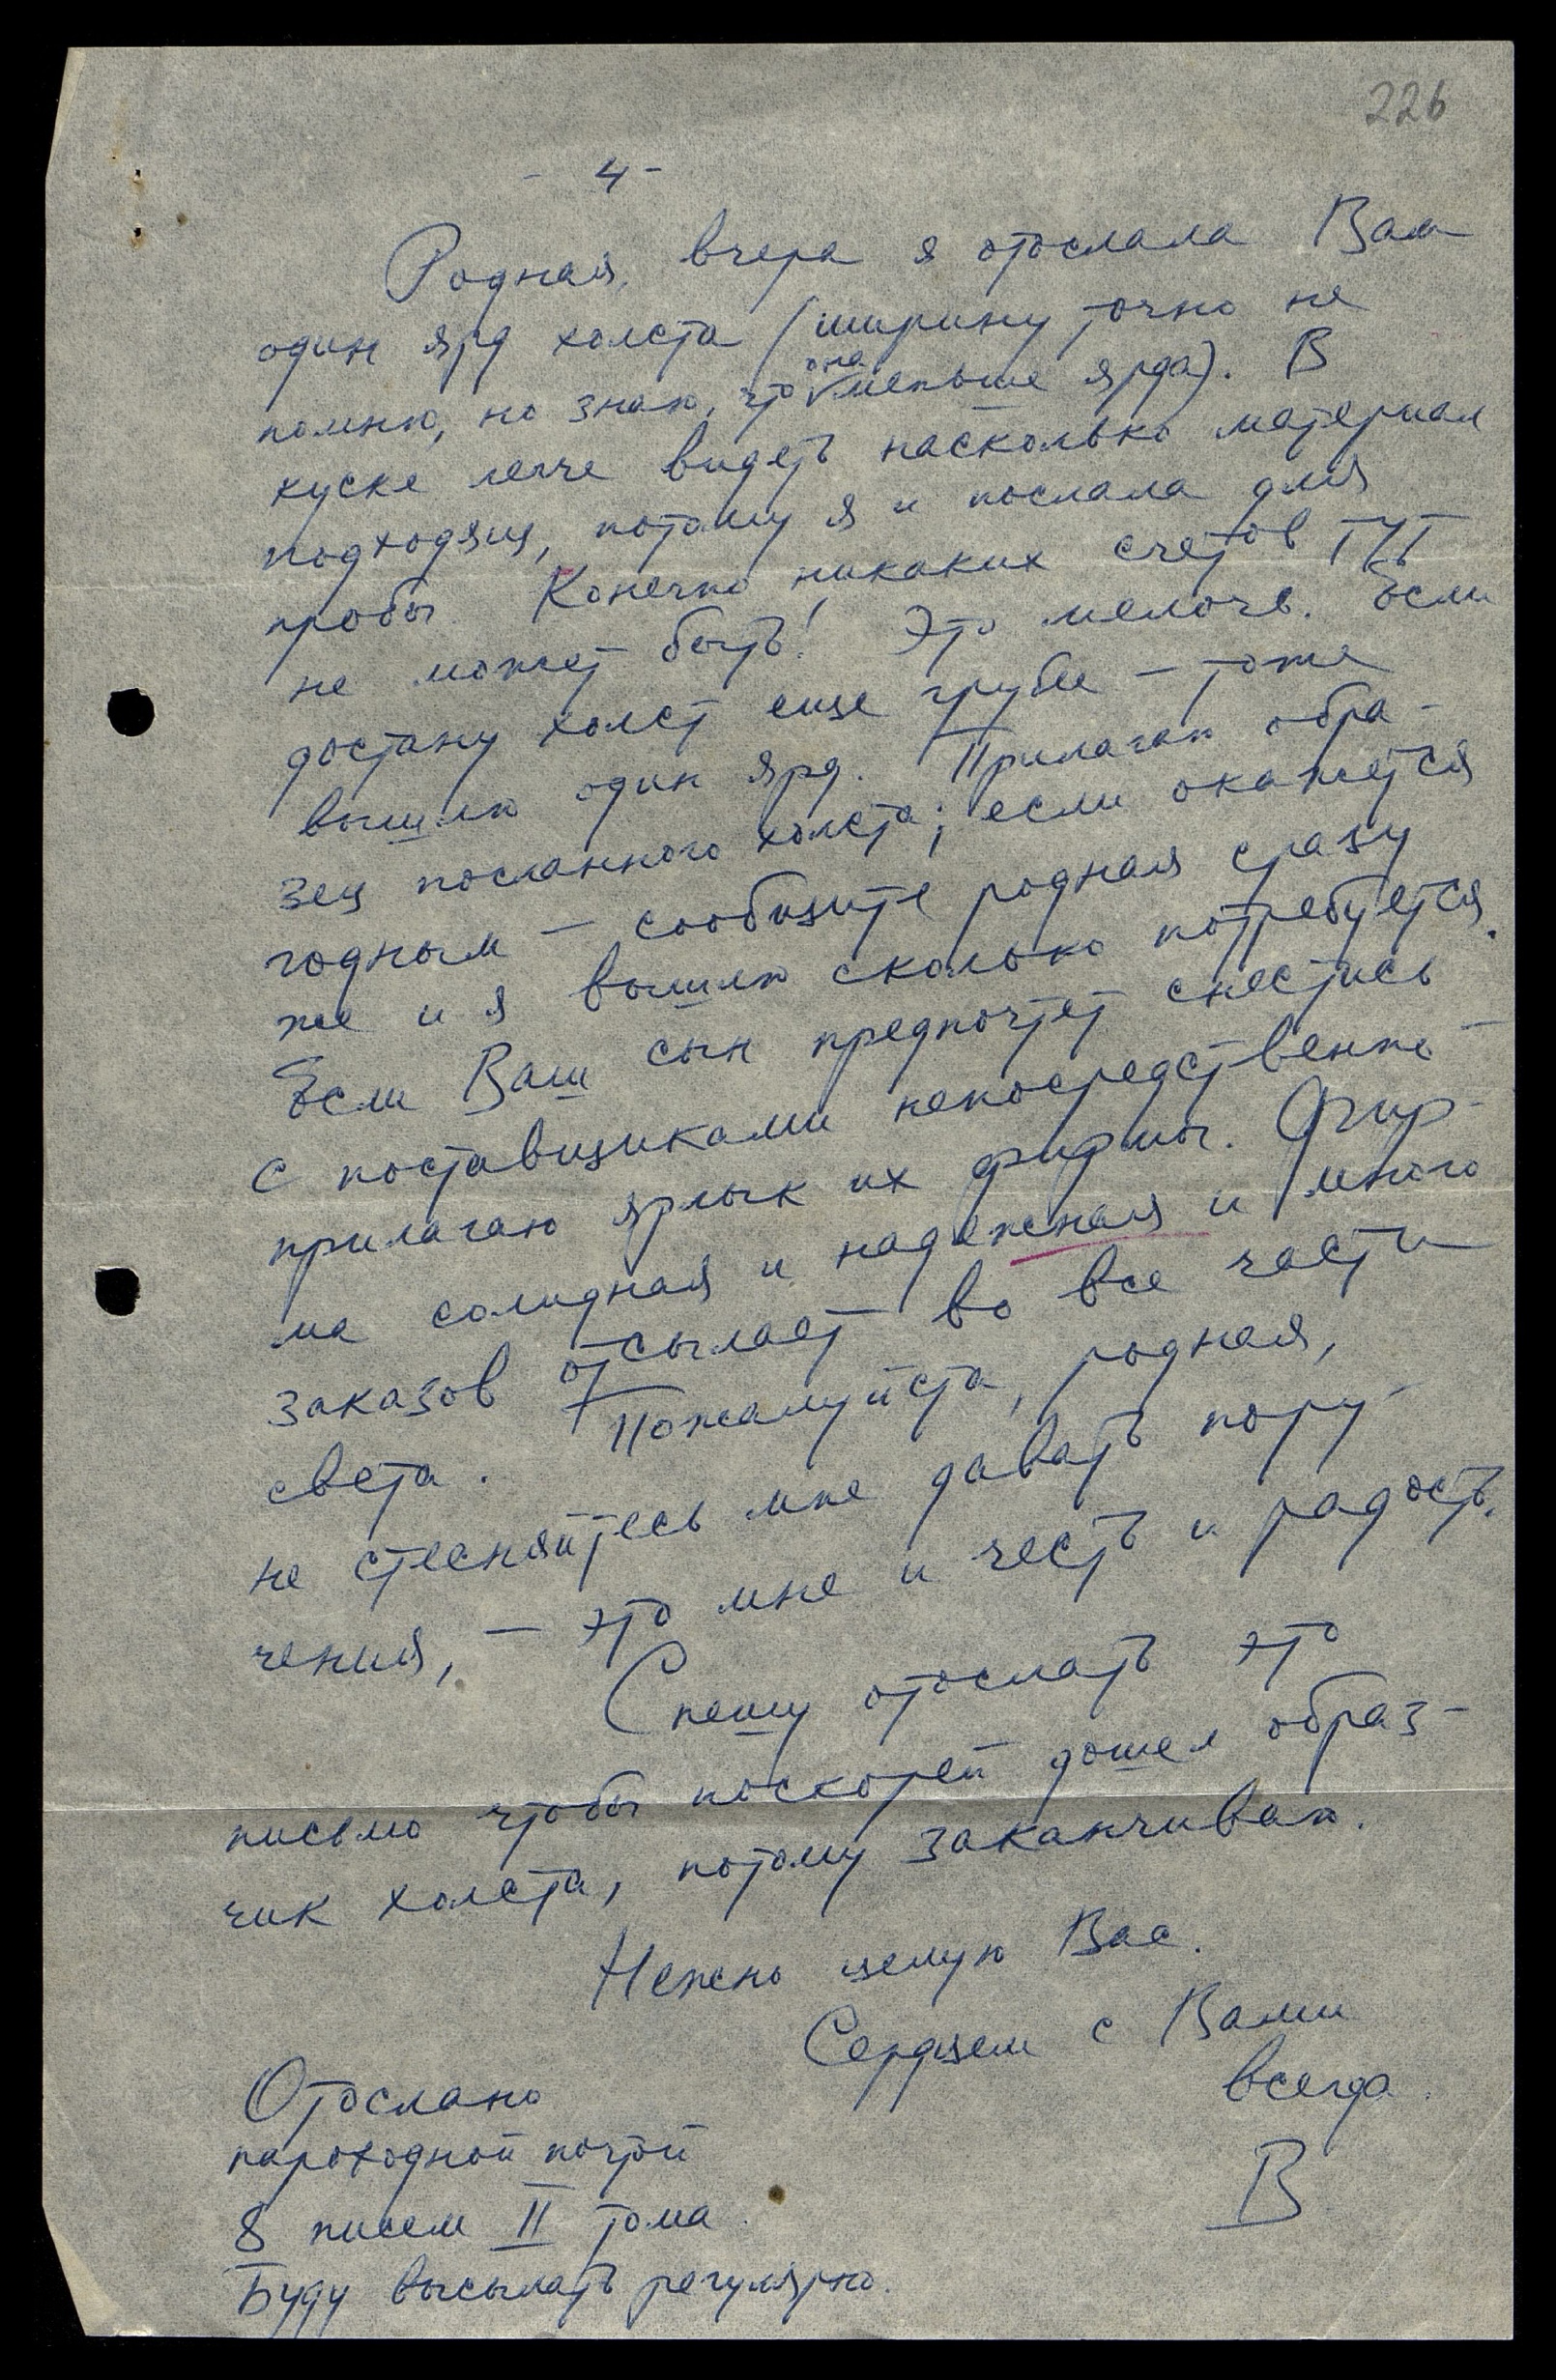 226
- 4 -
Родная, вчера я отослала Вам
один ярд холста (ширину точно не
помню, но знаю, что она меньше ярда). В
куске легче видеть насколько материал
подходящ, потому я и послала для
пробы. Конечно никаких счетов тут
не может быть! Это мелочь. Если
достану холст еще грубее – тоже
вышлю один ярд. Прилагаю обра-
зец посланного холста; если окажется
годным – сообщите родная сразу
же и я вышлю сколько потребуется.
Если Ваш сын предпочтет снестись
с поставщиками непосредственно –
прилагаю ярлык их фирмы. Фир-
ма солидная и надежная и много
заказов отсылает во все части
света. Пожалуйста, родная,
не стесняйтесь мне давать пору-
чения, – это мне и честь и радость.
Спешу отослать это
письмо чтобы поскорей дошел образ-
чик холста, потому заканчиваю.
Нежно целую Вас.
Сердцем с Вами
всегда.
В
Отослано
пароходной почтой
8 писем II тома.
Буду высылать регулярно.